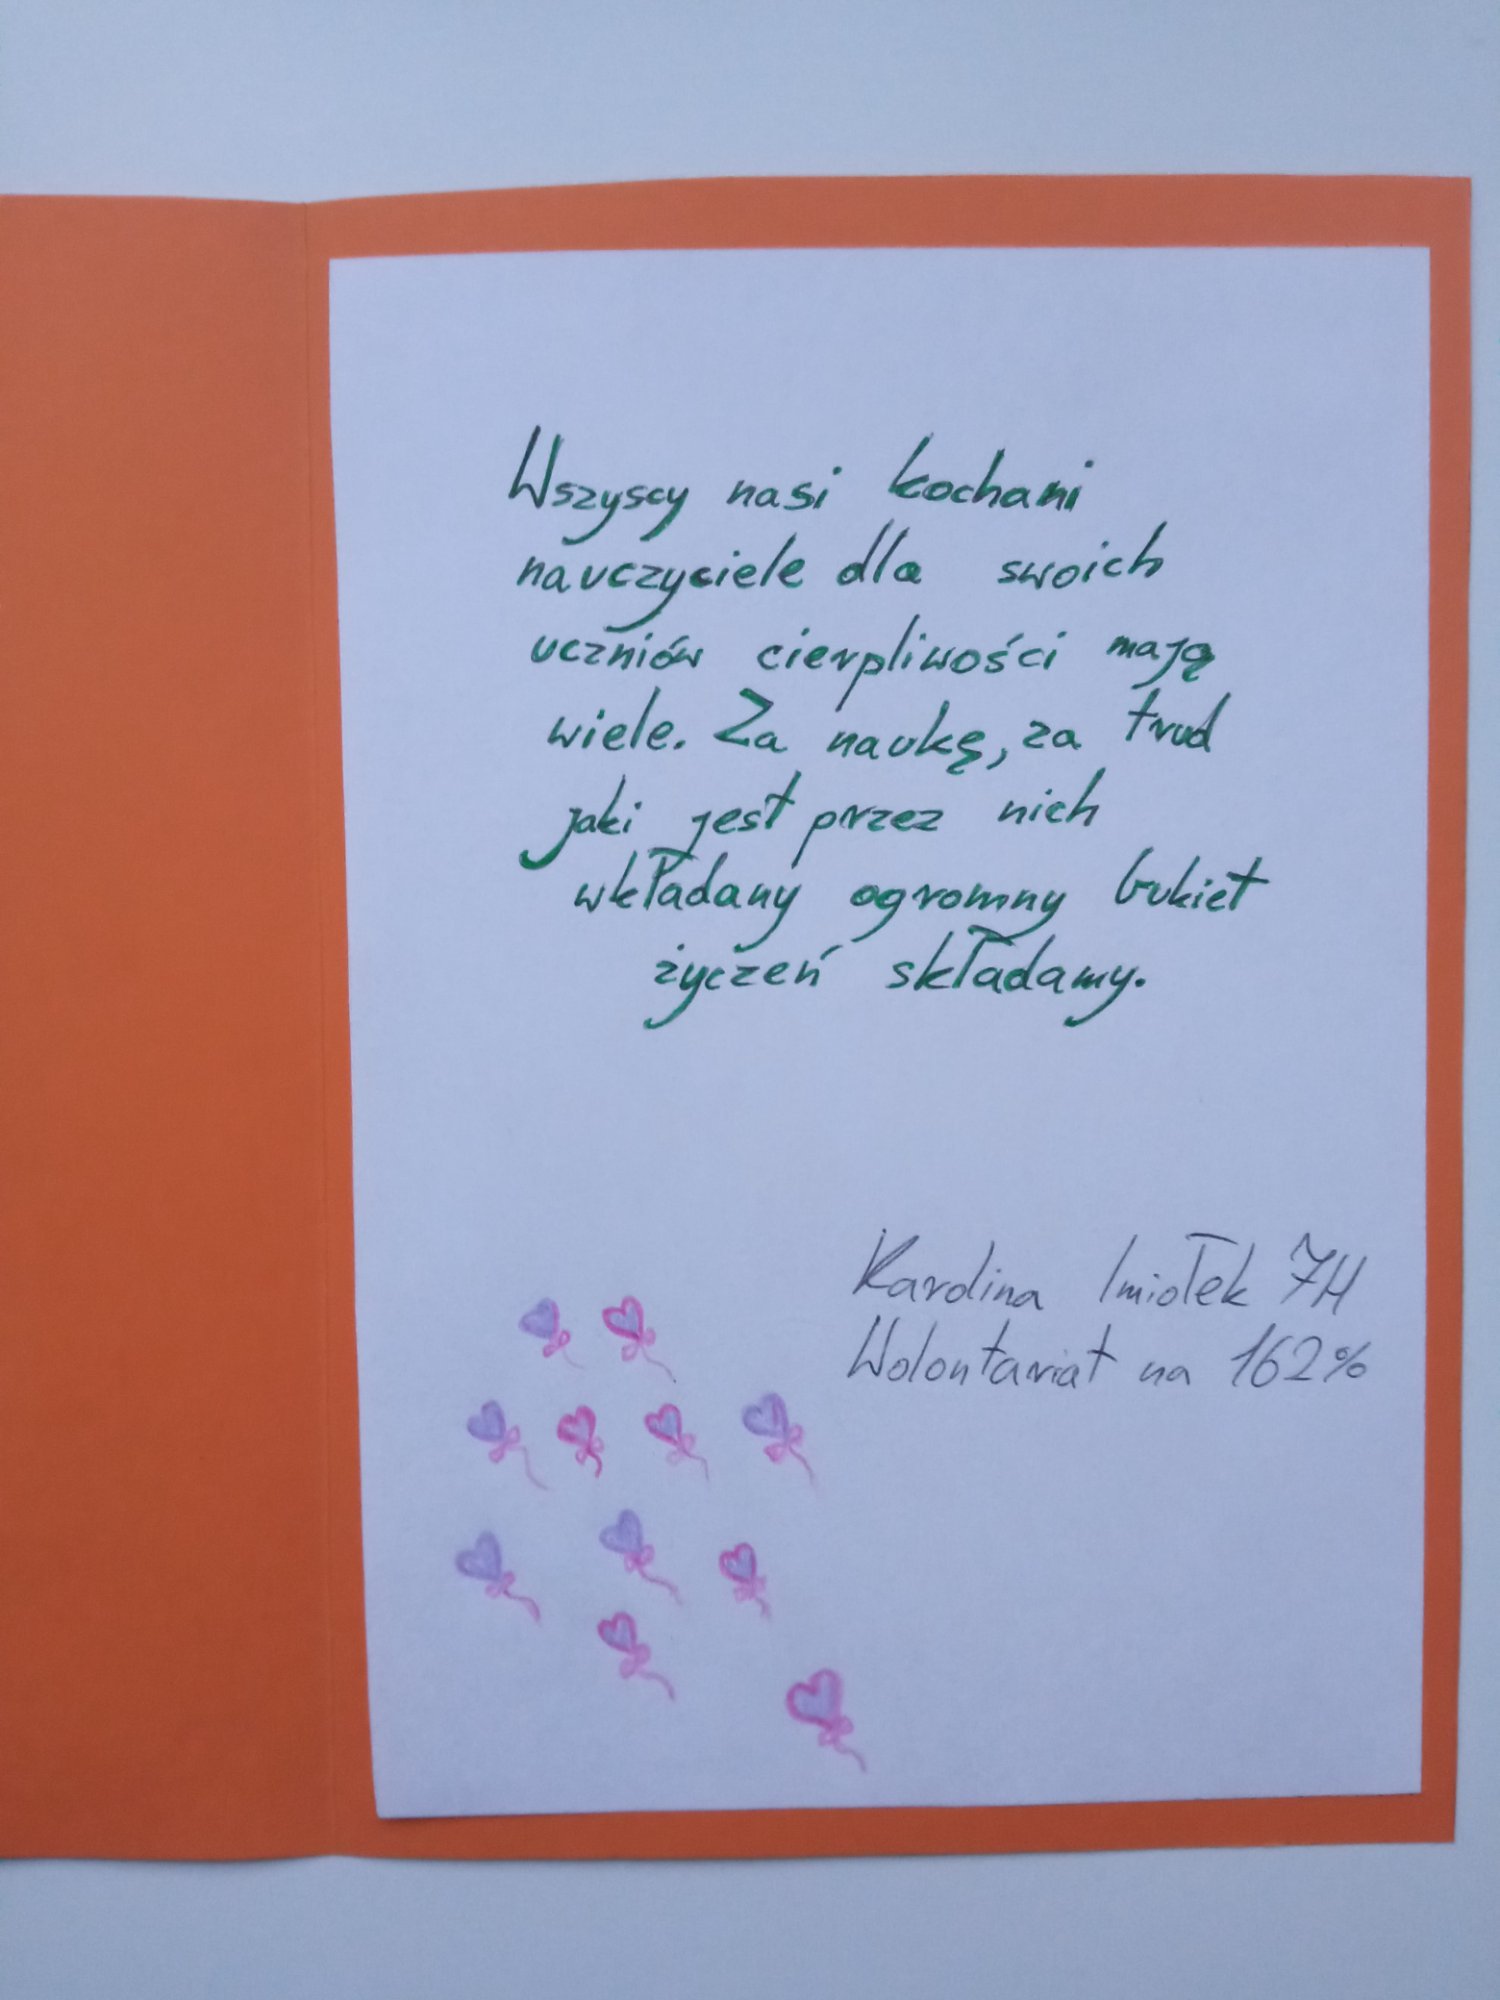 Wszyscy nasi kochani
nauczyciele dla swoich
uczniów cierpliwości mają
wiele. Za naukę, za trud
jaki jest przez nich
wkładany ogromny bukiet
życzeń składamy.
Karolina Imiołek 7H
Wolontariat na 162%